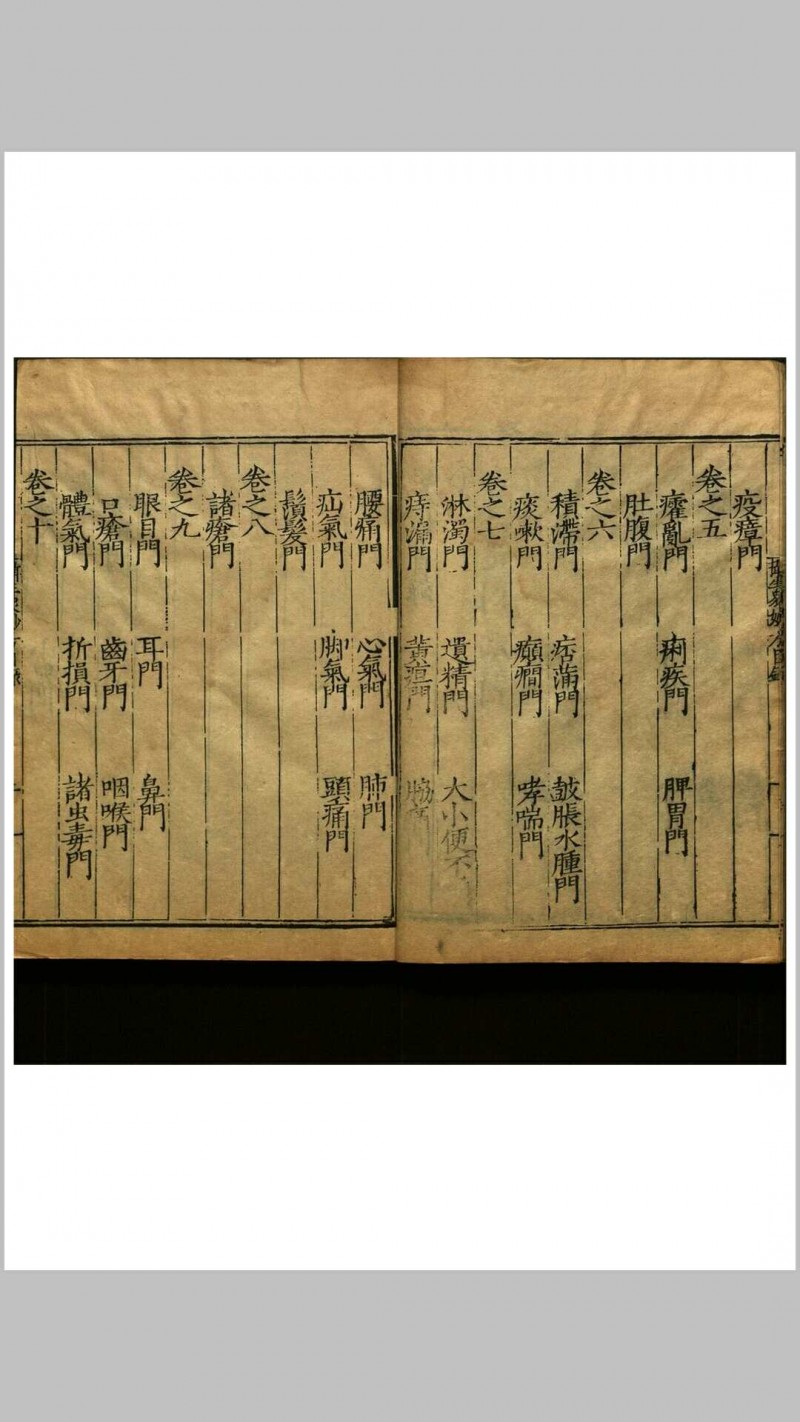 疫瘴門
卷之五
癨亂門 痢疾門 脾胃門
肚腹門
卷之六
積滯門 痞滿門 皷脹水腫門
痰嗽門 癲癇門 哮喘門
卷之七
淋濁門 遺精門 大小便不
痔漏門 黃疸門
腰痛門 心氣門 肺門
疝氣門 脚氣門 頭痛門
鬚髮門
卷之八
諸瘡門
卷之九
眼目門 耳門 鼻門
口瘡門 齒牙門 咽喉門
體氣門 折損門 諸虫毒門
卷之十